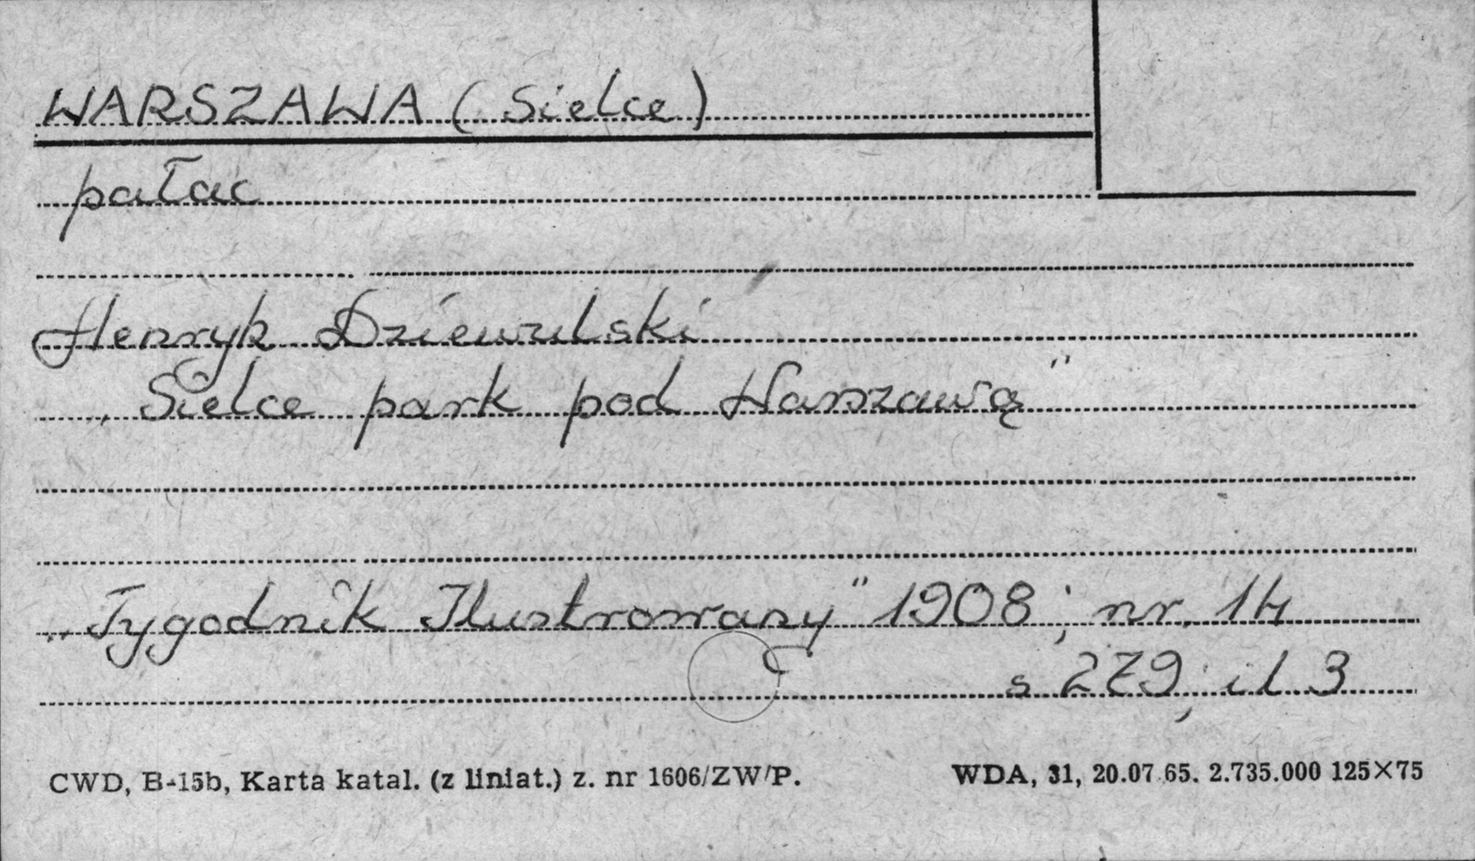 WARSZAWA (Sielce)
pałac
Henryk Dziewulski
„Sielce park pod Warszawą"
„Tygodnik Ilustrowany" 1908; nr. 14
s 279; il 3
CWD, B-15b, Karta katal. (z liniat.) z. nr 1606/ZW/P.
WDA, 31, 20.07.65. 2.735.000 125×75